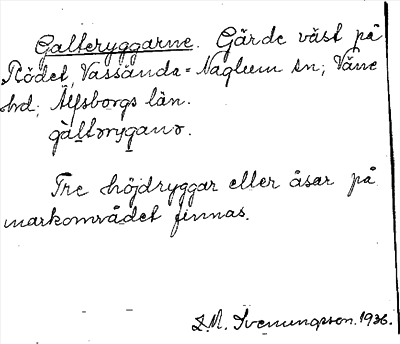 Galteryggarne. Gärde väst på
Rödet, Vassända-Naglum sn; Väne
hd; Älfsborgs län.
gàltəryganə.
Tre höjdryggar eller åsar på
markområdet finnas.
D.M. Svenungsson. 1936.